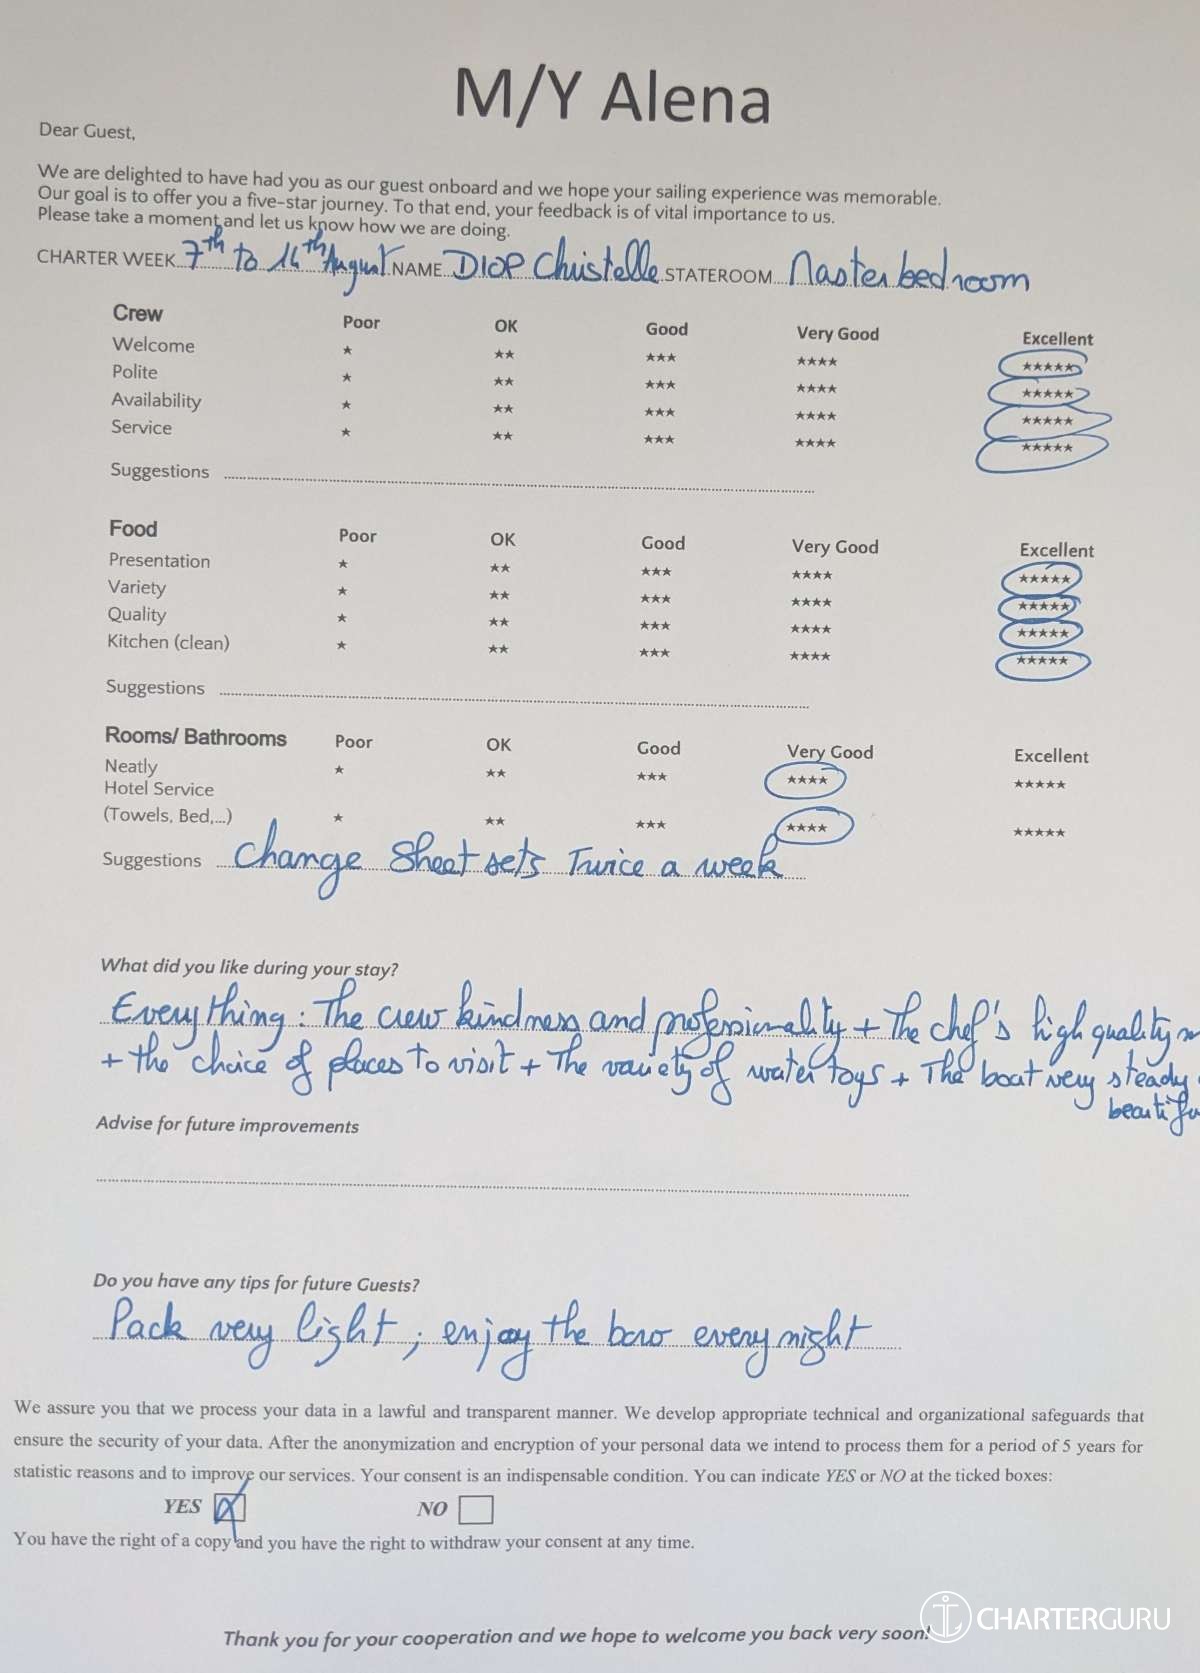 M/Y Alena
Dear Guest,
We are delighted to have had you as our guest onboard and we hope your sailing experience was memorable.
Our goal is to offer you a five-star journey. To that end, your feedback is of vital importance to us.
Please take a moment and let us know how we are doing.
CHARTER WEEK 7th to 14th August NAME DIOP Christelle STATEROOM Master bedroom
Crew Poor OK Good Very Good Excellent
Welcome ★ ★★ ★★★ ★★★★ ★★★★★
Polite ★ ★★ ★★★ ★★★★ ★★★★★
Availability ★ ★★ ★★★ ★★★★ ★★★★★
Service ★ ★★ ★★★ ★★★★ ★★★★★
Suggestions
Food Poor OK Good Very Good Excellent
Presentation ★ ★★ ★★★ ★★★★ ★★★★★
Variety ★ ★★ ★★★ ★★★★ ★★★★★
Quality ★ ★★ ★★★ ★★★★ ★★★★★
Kitchen (clean) ★ ★★ ★★★ ★★★★ ★★★★★
Suggestions
Rooms/ Bathrooms Poor OK Good Very Good Excellent
Neatly ★ ★★ ★★★ ★★★★ ★★★★★
Hotel Service
(Towels, Bed,...) ★ ★★ ★★★ ★★★★ ★★★★★
Suggestions Change Sheet sets Twice a week
What did you like during your stay?
Everything : The crew kindness and professionnality + The chef's high quality
+ the choice of places to visit + The variety of water toys + The boat very steady
Advise for future improvements
Do you have any tips for future Guests?
Pack very light ; enjoy the bow every night
We assure you that we process your data in a lawful and transparent manner. We develop appropriate technical and organizational safeguards that
ensure the security of your data. After the anonymization and encryption of your personal data we intend to process them for a period of 5 years for
statistic reasons and to improve our services. Your consent is an indispensable condition. You can indicate YES or NO at the ticked boxes:
YES NO
You have the right of a copy and you have the right to withdraw your consent at any time.
Thank you for your cooperation and we hope to welcome you back very soon!
CHARTERGURU